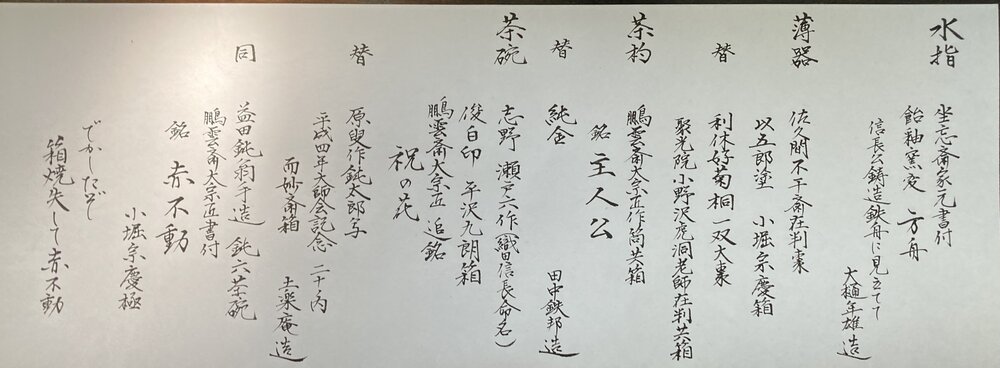 水指
坐忘斎家元書付
飴釉窯変 方舟
信長公鋳造鉄舟に見立てて
大樋年雄造
薄器
佐久間不干斎在判棗
以五郎塗 小堀宗慶箱
替
利休好菊桐一双大棗
聚光院小野沢虎洞老師在判共箱
茶杓
鵬雲斎大宗匠作筒共箱
銘 主人公
替
純金
田中鉄邦造
茶碗
志野 瀬戸六作(織田信長命名)
俊白印 平沢九朗箱
鵬雲斎大宗匠 追銘
祝の花
替
原叟作鈍太郎写
平成四年大師会記念 二十ノ内
而妙斎箱
土楽庵造
同
益田鈍翁手造 鈍六茶碗
鵬雲斎大宗匠書付
銘 赤不動
小堀宗慶極
でかしただぞ
箱焼失して赤不動